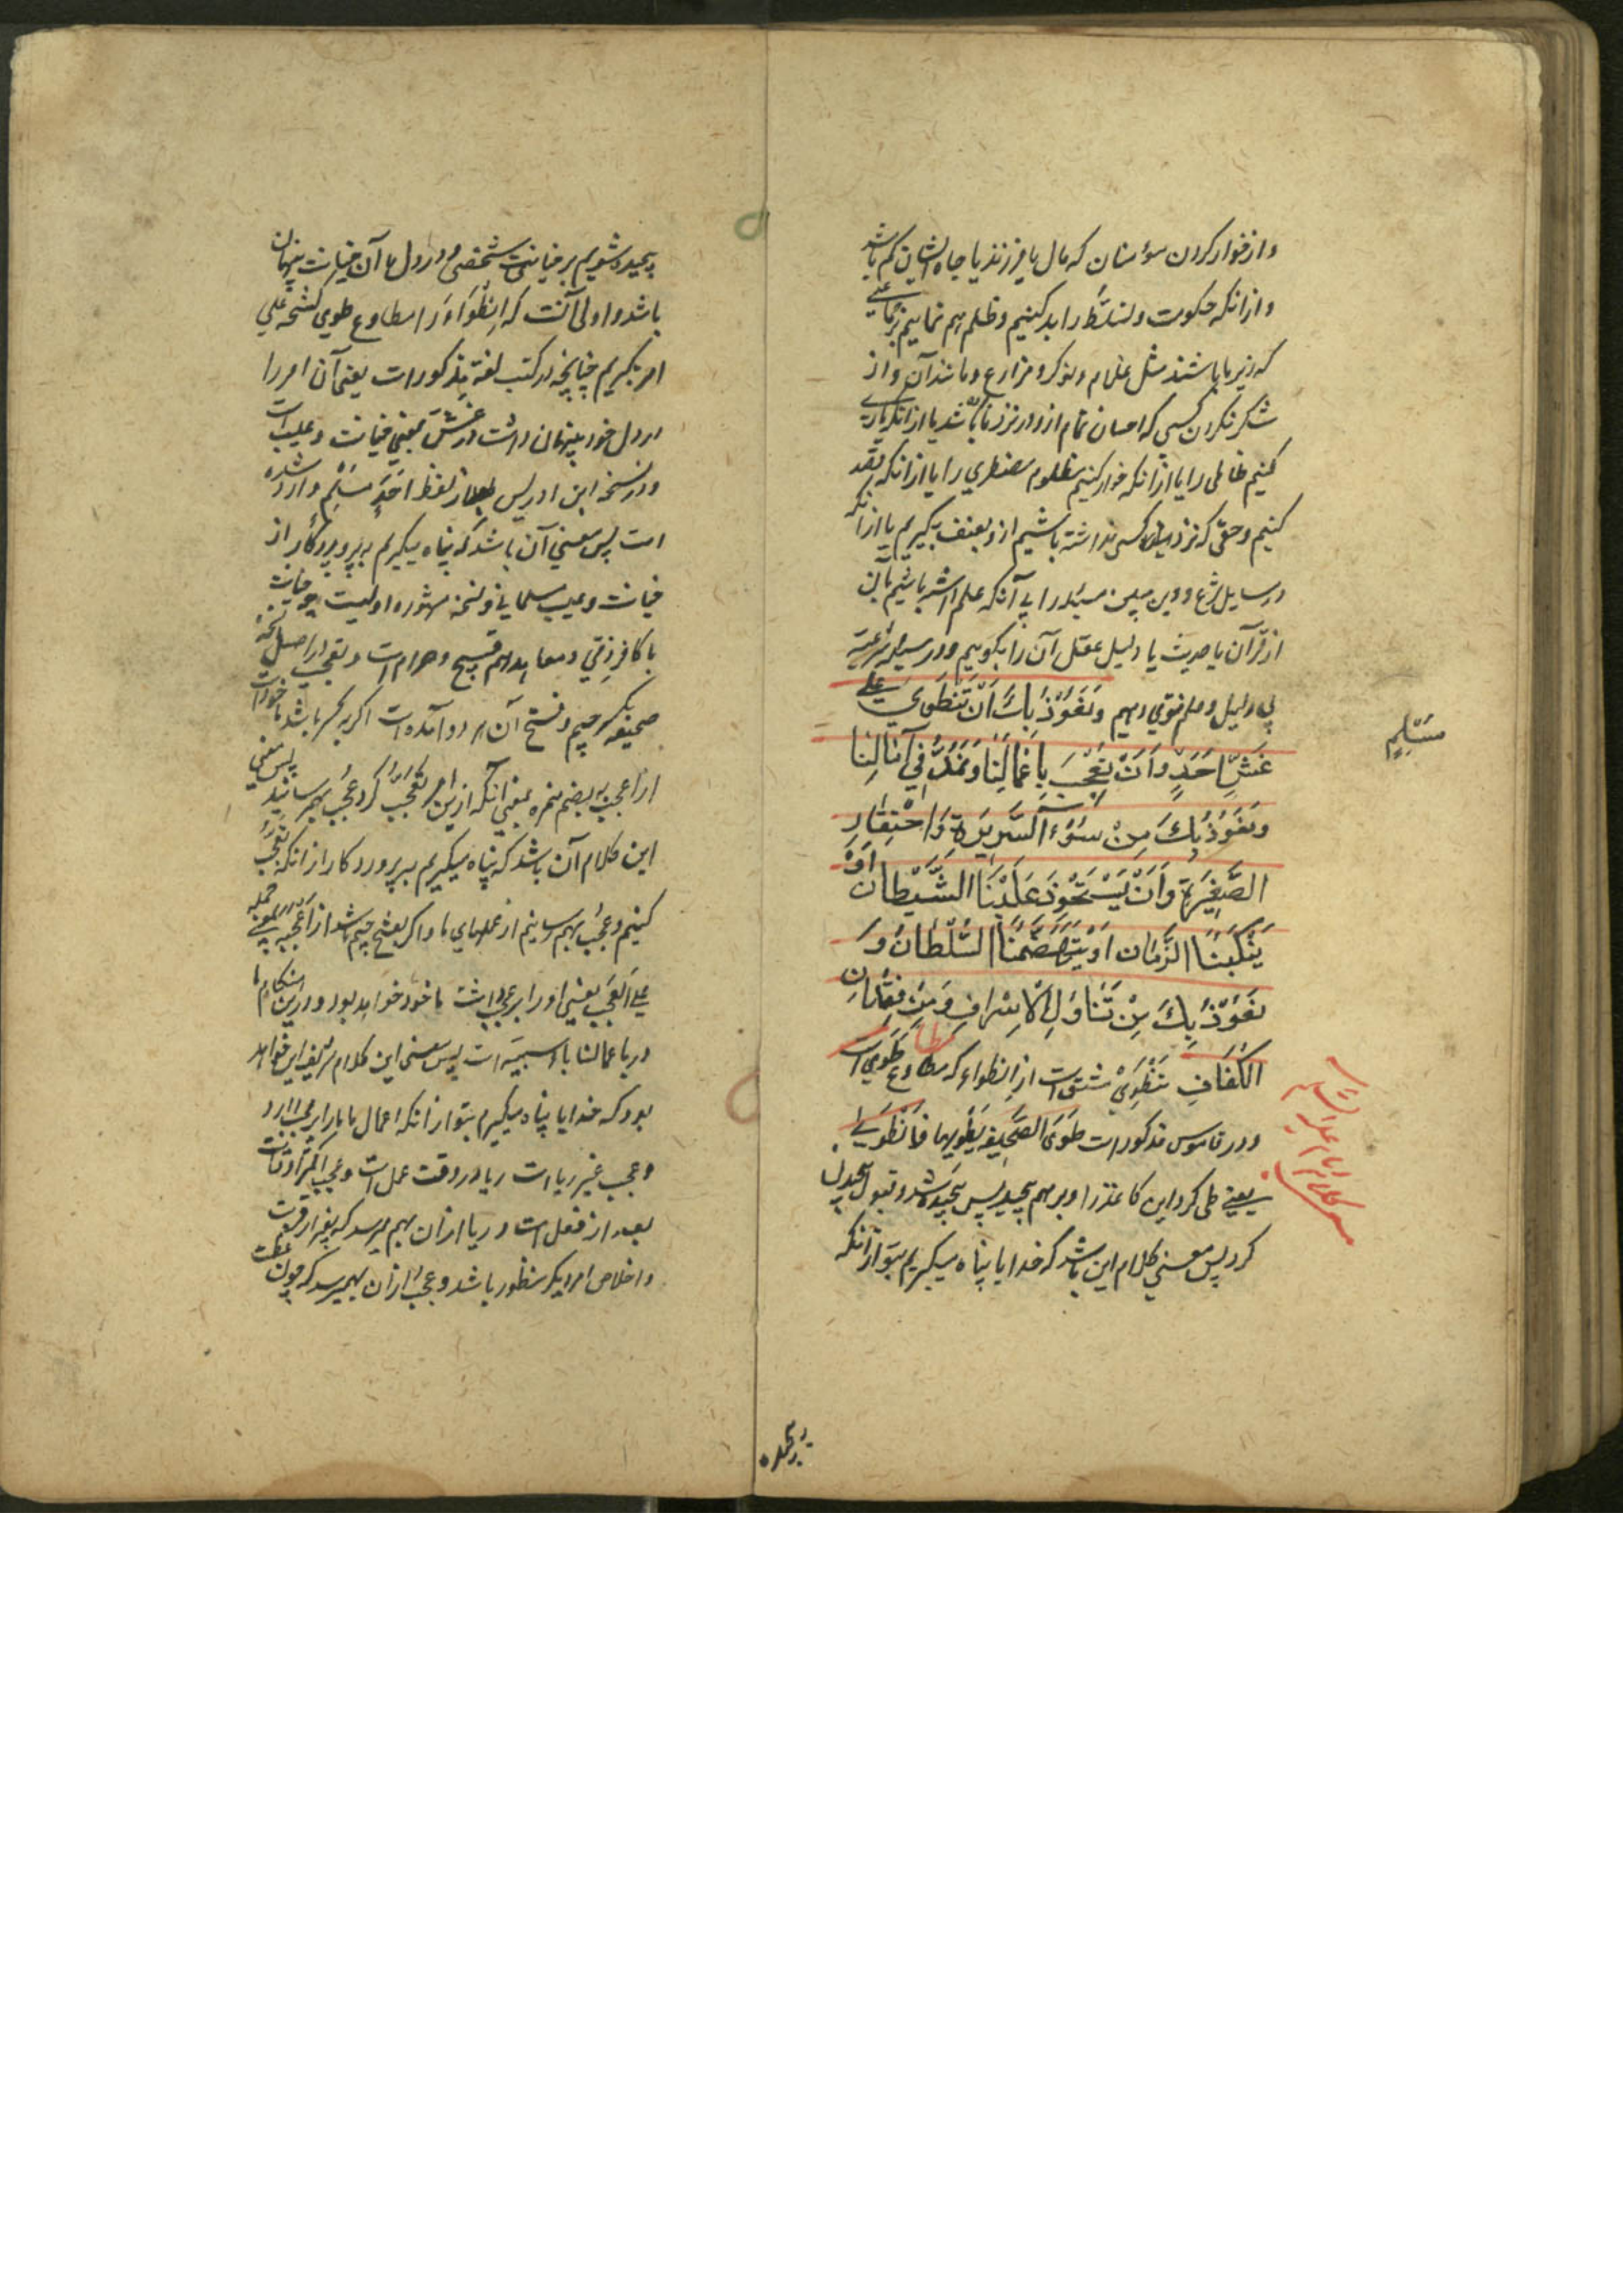 و از خوار کردن مؤمنان که مال یا فرزند یا جاه ایشان کم باشد
و از انکه حکومت و تسلط را بد کنیم و ظلم هم نماییم بر جماعتی
که زیر ما باشند مثل غلام و نوکر و مزارع و مانند آن و از
شکر نکردن کسی که احسان تمام از و در نزد ما باشد یا از انکه یاری
کنیم ظالمی را یا از انکه خوار کنیم مظلوم مضطری را یا از انکه قصد
کنیم و حقی که نزد کسی نداشته باشیم از و بعنف بگیریم یا از انکه
در مسایل شرع و دین مبین مسئله را بی آنکه علم داشته باشیم بآن
از قرآن یا حدیث یا دلیل عقل آن را بگوییم و در مسئله شرعیه
بی دلیل و علم فتوی دهیم وَنَعُوذُ بِكَ أَنْ نَنْطَوِيَ عَلَى
غِشِّ أَحَدٍ وَأَنْ نُعْجِبَ بِأَعْمَالِنَا وَنَمُدَّ فِي آمَالِنَا
مُسْلِمٍ
وَنَعُوذُ بِكَ مِنْ سُوءِ السَّرِيرَةِ وَاحْتِقَارِ
الصَّغِيرَةِ وَأَنْ يَسْتَحْوِذَ عَلَيْنَا الشَّيْطَانُ أَوْ
يَنْكُبَنَا الزَّمَانُ أَوْ يَتَهَضَّمَنَا السُّلْطَانُ وَ
نَعُوذُ بِكَ مِنْ تَنَاوُلِ الْإِسْرَافِ وَمِنْ فِقْدَانِ
الْكَفَافِ نَنْطَوِيَ مشتق است از انطواء که مطاوع طَوَی است
و در قاموس مذکور است طَوَی الصَّحِیفَةَ یَطْوِیها فَانْطَوَی
یعنی طی کرد این کاغذ را و بر هم پیچید پس پیچیده شد و قبول پیچیدن
کرد پس معنی کلام این باشد که خدایا پناه میگیریم بتو از آنکه
پیچیده
پیچیده شویم بر خیانت شخصی و در دل ما آن خیانت پنهان
باشد و اولی آنست که انطواء را مطاوع طوی کشحه علی
امر بگیریم چنانچه در کتب لغة مذکور است یعنی آن امر را
در دل خود پنهان داشت و غش بمعنی خیانت و عیب است
و در نسخه ابن ادریس بعد از لفظ احد مسلم وارد شده
است پس معنی آن باشد که پناه میگیریم به پروردگار از
خیانت و عیب مسلمانی و نسخه مشهوره اولیست چه خیانت
با کافر ذمی و معاهد هم قبیح و حرام است و نعجب در اصل نسخه
صحیفه بکسر جیم و فتح آن هر دو آمده است اگر بکسر باشد ماخوذ است
از اعجب به بضم همزه بمعنی آنکه ازین امر تعجب کرد و عجب بهم رسانید پس معنی
این کلام آن باشد که پناه میگیریم به پروردگار از انکه تعجب
کنیم و عجب بهم رسانیم از عملهای ما و اگر بفتح جیم باشد از اعجبه بمعنی حمله
علی العجب یعنی او را بر عجب داشت ماخوذ خواهد بود و درین هنگام با
در باعمالنا باء سببیه است پس معنی این کلام شریف این خواهد
بود که خدایا پناه میگیریم بتو از انکه اعمال ما ما را بر عجب دارد
و عجب غیر ریا است ریا در وقت عمل است و عجب اکثر اوقات
بعد از فعل است و ریا ازان بهم میرسد که بغیر از قربت
و اخلاص امر دیگر منظور باشد و عجب ازان بهم میرسد که چون عظمت